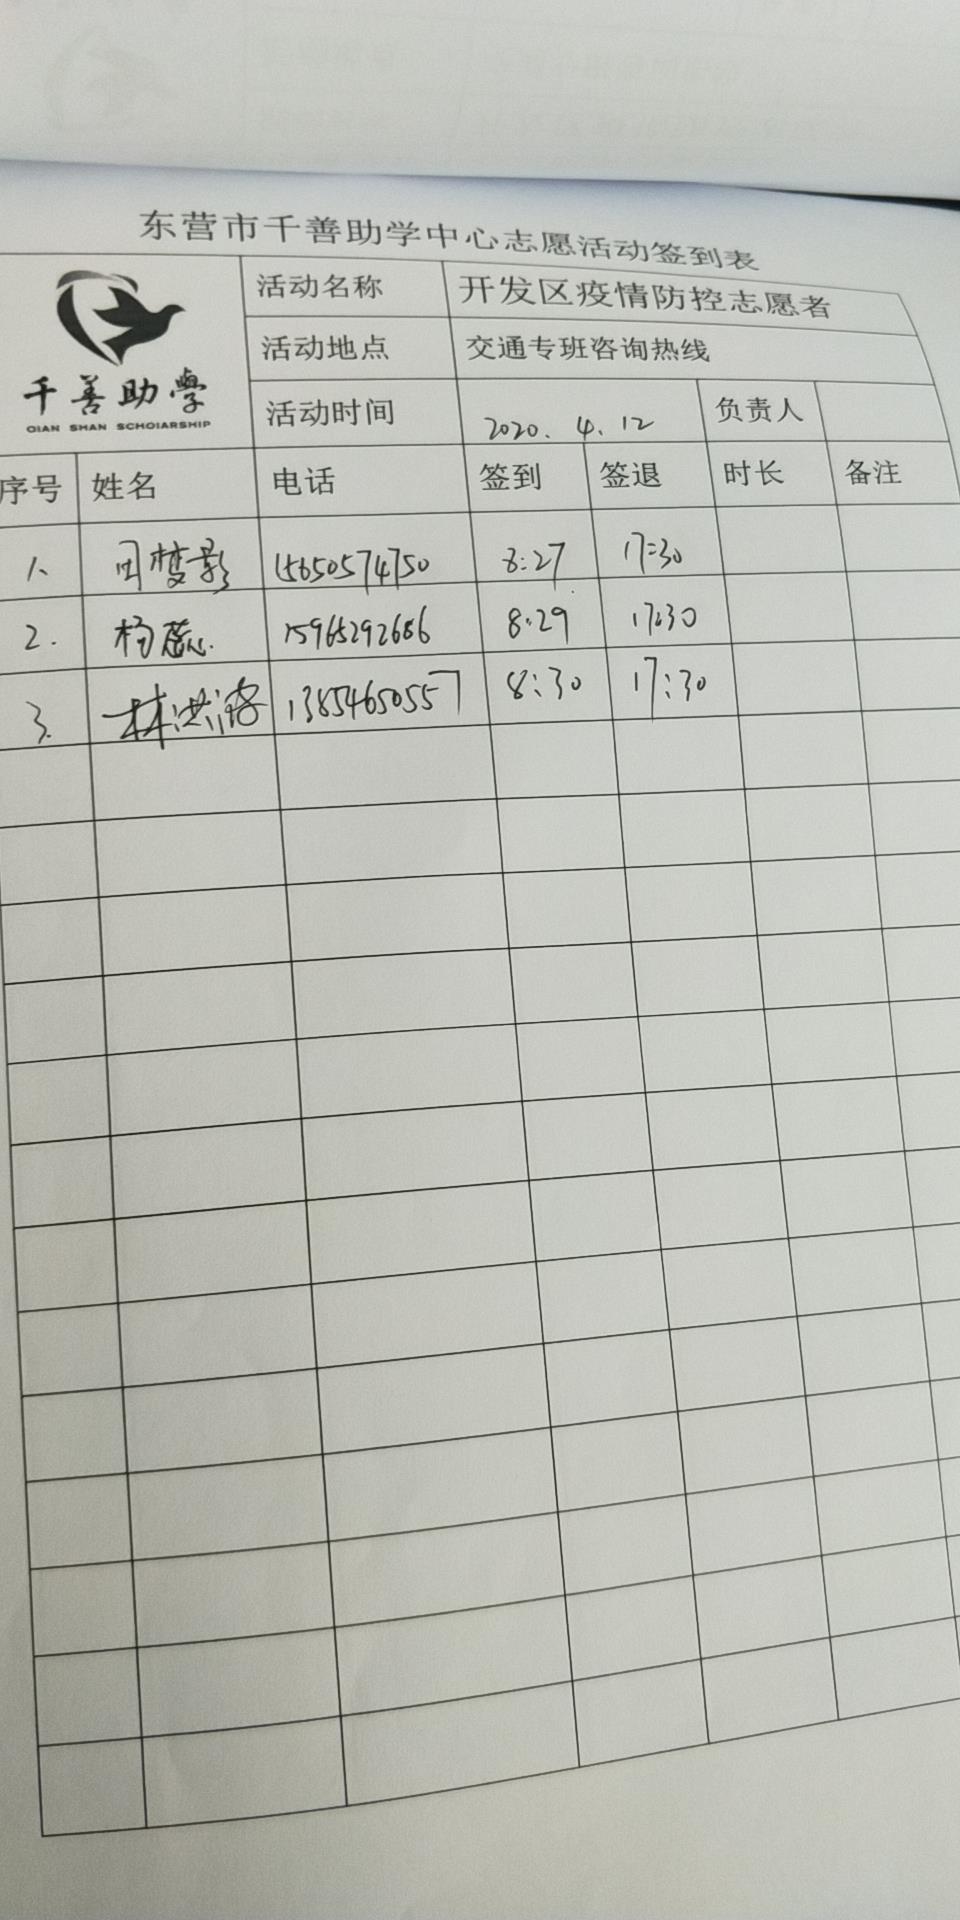 东营市千善助学中心志愿活动签到表
千善助學
QIAN SHAN SCHOIARSHIP
活动名称 开发区疫情防控志愿者
活动地点 交通专班咨询热线
活动时间 2020.4.12 负责人
序号 姓名 电话 签到 签退 时长 备注
1. 田梦影 15650574750 8:27 17:30
2. 杨蕊 15965292686 8:29 17:30
3. 林洪 13854650557 8:30 17:30